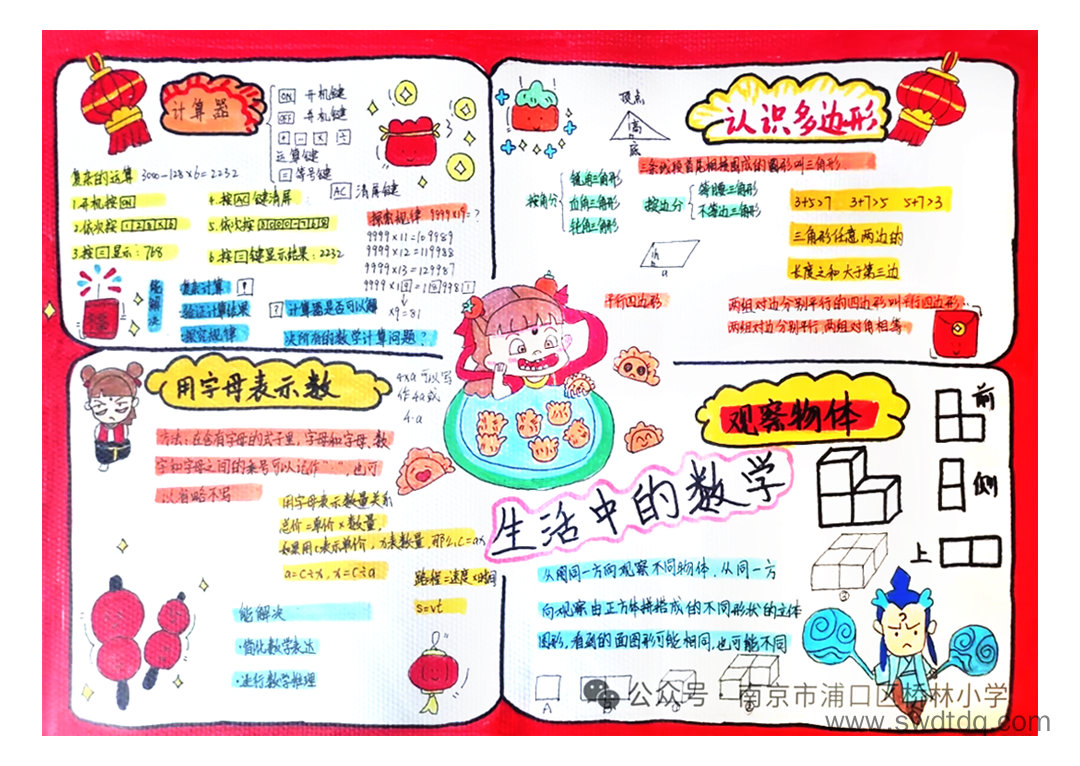 计算器
ON 开机键
OFF 关机键
+ - × ÷
运算键
= 等号键
AC 清屏键
复杂的运算 3000-128×6=2232
1.开机按ON
2.依次按128×6
3.按=显示：768
4.按AC键清屏
5.依次按3000-768
6.按=键显示结果：2232
探索规律 9999×19=?
9999×11=109989
9999×12=119988
9999×13=129987
×9=81
能解决
复杂计算
·验证计算结果
·探究规律
? 计算器是否可以解
决所有的数学计算问题？
认识多边形
顶点
高
底
三条线段首尾相接围成的图形叫三角形.
按角分
锐角三角形
直角三角形
钝角三角形
按边分
等腰三角形
不等边三角形
3+5>7 3+7>5 5+7>3
三角形任意两边的
长度之和大于第三边
h
a
平行四边形
两组对边分别平行的四边形叫平行四边形.
两组对边分别平行,两组对角相等
用字母表示数
4×a可以写
作4a或
4·a
方法:在含有字母的式子里,字母和字母、数
字和字母之间的乘号可以记作"·",也可
以省略不写
用字母表示数量关系
总价=单价×数量
a=c÷x，x=c÷a
路程=速度×时间
s=vt
能解决
·简化数学表达
·进行数学推理
生活中的数学
观察物体
前
侧
上
②
从同一方向观察不同物体，从同一方
向观察由正方体拼搭成的不同形状的立体
图形,看到的面图形可能相同,也可能不同
A
公众号·南京市浦口区桥林小学
www.swdtdq.com